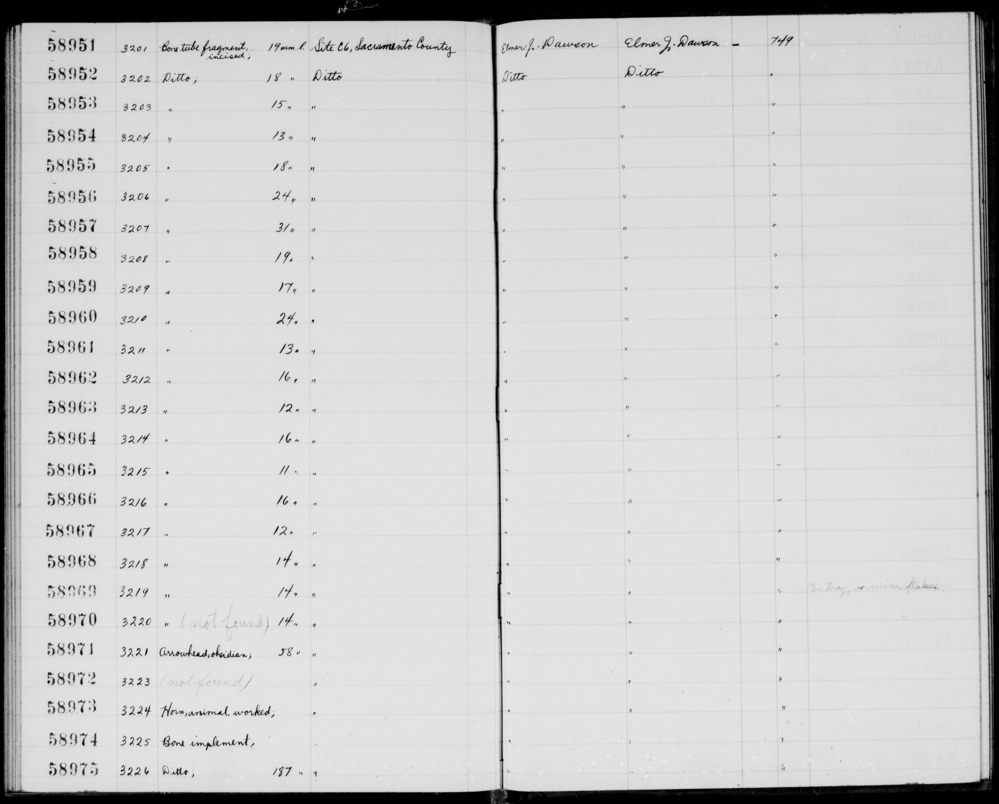 58951 3201 Bone tube fragment, incised, 19mm l. Site C6, Sacramento County Elmer J. Dawson Elmer J. Dawson – 749
58952 3202 Ditto, 18 " Ditto Ditto Ditto "
58953 3203 " 15 " " " " "
58954 3204 " 13 " " " " "
58955 3205 " 18 " " " " "
58956 3206 " 24 " " " " "
58957 3207 " 31 " " " " "
58958 3208 " 19 " " " " "
58959 3209 " 17 " " " " "
58960 3210 " 24 " " " " "
58961 3211 " 13 " " " " "
58962 3212 " 16 " " " " "
58963 3213 " 12 " " " " "
58964 3214 " 16 " " " " "
58965 3215 " 11 " " " " "
58966 3216 " 16 " " " " "
58967 3217 " 12 " " " " "
58968 3218 " 14 " " " " "
58969 3219 " 14 " " " " "
58970 3220 " (not found) 14 " " " " "
58971 3221 Arrowhead, obsidian; 58 " " " " "
58972 3223 (not found) " " " "
58973 3224 Horn, animal, worked, " " " "
58974 3225 Bone implement, " " " "
58975 3226 Ditto, 187 " " " " "